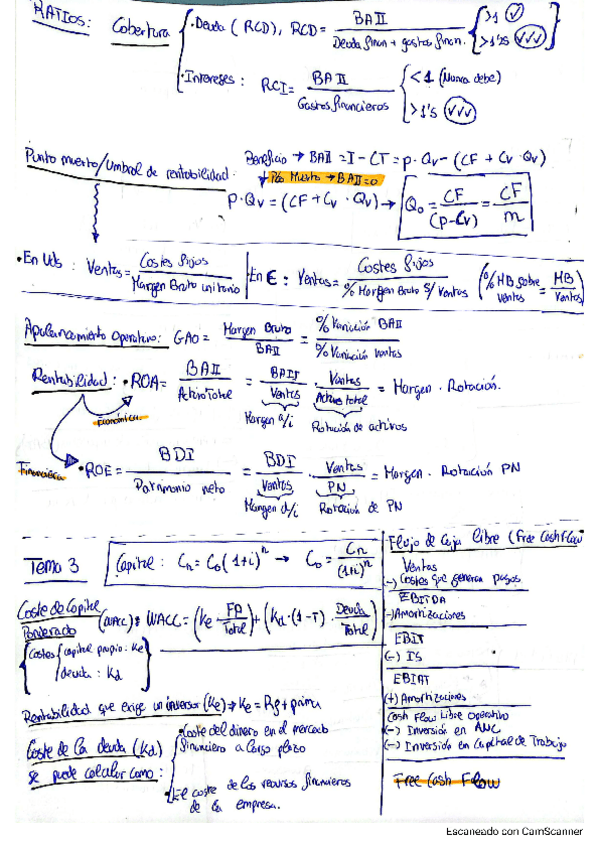 RATIOS: Cobertura
· Deuda (RCD), RCD = BAII / Deuda finan + gastos finan. >1 ✓ >1'25 ✓✓✓
· Intereses: RCI = BAII / Gastos financieros <1 (Nunca debe) >1'5 ✓✓✓
Punto muerto/Umbral de rentabilidad: Beneficio → BAII = I - CT = p · Qv - (CF + Cv · Qv)
↓ Pto Muerto → BAII = 0
P · Qv = (CF + Cv · Qv) → Q₀ = CF / (p - Cv) = CF / m
· En Uds: Ventas = Costes fijos / Margen Bruto unitario
En €: Ventas = Costes fijos / % Margen Bruto S/ Ventas (% MB sobre ventas = MB / Ventas)
Apalancamiento Operativo: GAO = Margen Bruto / BAII = % Variación BAII / % Variación ventas
Rentabilidad: · ROA = BAII / Activo Total = BAII / Ventas · Ventas / Activo total = Margen · Rotación.
Económica
Margen a/i Rotación de activos
Financiera · ROE = BDI / Patrimonio neto = BDI / Ventas · Ventas / PN = Margen · Rotación PN
Margen d/i Rotación de PN
Tema 3
Capital: Cn = C₀(1+i)ⁿ → C₀ = Cn / (1+i)ⁿ
Coste de Capital Ponderado (WACC): WACC = (Ke · FP / Total) + (Kd · (1-T) · Deuda / Total)
Costes
capital propio: Ke
deuda: Kd
Rentabilidad que exige un inversor (Ke) → Ke = Rf + prima
Coste de la deuda (Kd) se puede calcular como:
· Coste del dinero en el mercado financiero a largo plazo
· El coste de los recursos financieros de la empresa.
Flujo de Caja libre (Free Cash Flow
Ventas
(-) Costes que generan pagos
EBITDA
(-) Amortizaciones
EBIT
(-) IS
EBIAT
(+) Amortizaciones
Cash Flow Libre Operativo
(-) Inversión en ANC
(-) Inversión en Capital de Trabajo
Free Cash Flow
Escaneado con CamScanner